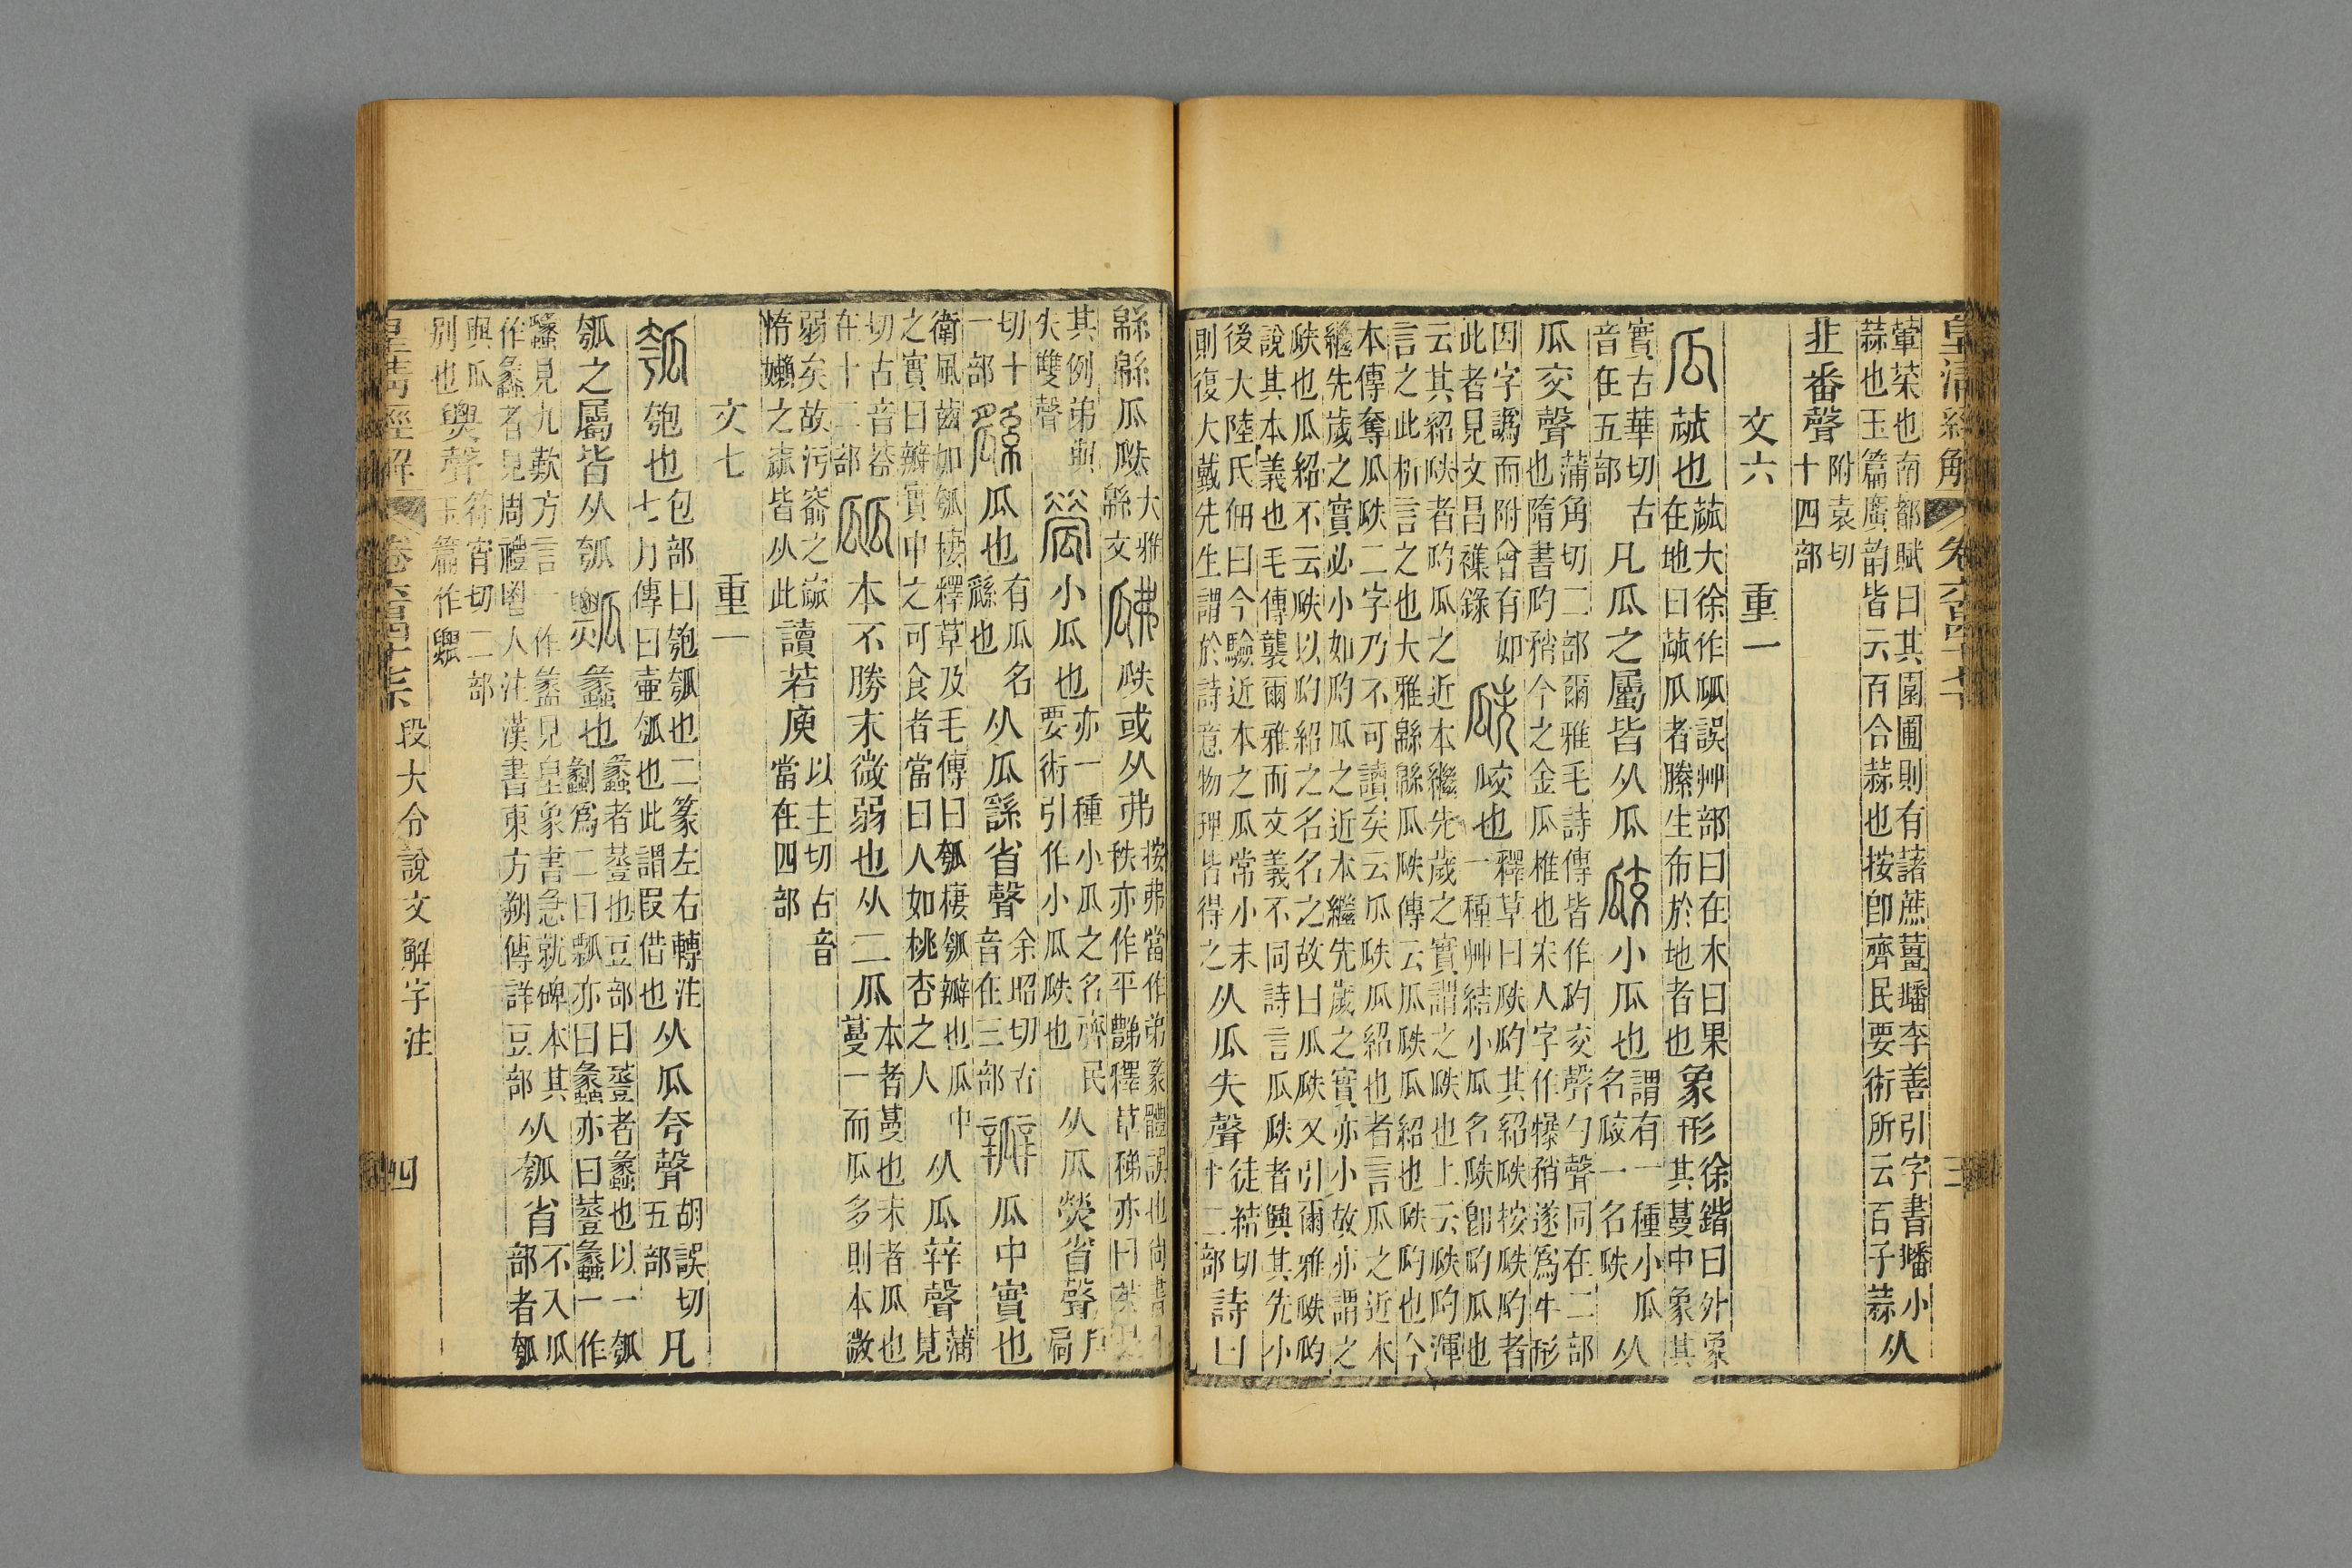 皇清經解 卷六百四十七下 三
葷菜也南都賦曰其園圃則有藷蔗薑䪤李善引字書䪤小
蒜也玉篇廣韵皆云百合蒜也按卽齊民要術所云百子蒜从
韭番聲附袁切十四部
文六 重一
瓜 㼌也㼌大徐作㼌誤艸部曰在木曰果在地曰㼌瓜者縢生布於地者也象形徐鍇曰外象其蔓中象其
實古華切古音在五部凡瓜之屬皆从瓜 㼎 小瓜也謂有一種小瓜名㼎一名瓞从
瓜交聲蒲角切二部爾雅毛詩傳皆作瓝交聲勺聲同在二部也隋書瓝矟今之金瓜椎也宋人字作犦矟遂爲牛形
因字譌而附會有如此者見文昌襍錄 瓞 㼎也釋草曰瓞瓝其紹瓞按瓞瓝者一種艸結小瓜名瓞卽瓝瓜也
云其紹瓞者瓝瓜之近本繼先歲之實謂之瓞也上云瓞瓝渾言之此析言之也大雅緜緜瓜瓞傳云瓜瓞瓜紹也瓞瓝也今
本傳奪瓜瓞二字乃不可讀矣云瓜瓞瓜紹也者言瓜之近本繼先歲之實必小如瓝瓜之近本繼先歲之實亦小故亦謂之
瓞也瓜紹不云瓞以瓝紹之名名之故曰瓜瓞又引爾雅瓞瓝說其本義也毛傳襲爾雅而文義不同詩言瓜瓞者興其先小
後大陸氏佃曰今驗近本之瓜常小末則復大戴先生謂於詩意物理皆得之从瓜失聲徒結切十二部詩曰
緜緜瓜瓞大雅緜文 𤬏 瓞或从弗按弗當作弟篆體誤也尙書平秩亦作平豑釋草稊亦曰
其例弟與失雙聲 㼆 小瓜也亦一種小瓜之名齊民要術引作小瓜瓞也从瓜熒省聲戶扃
切十一部 𤬖 瓜也有瓜名𤬖也从瓜繇省聲余昭切古音在三部 瓣 瓜中實也
衛風齒如瓠棲釋草及毛傳曰瓠棲瓠瓣也瓜中之實曰瓣實中之可食者當曰人如桃杏之人从瓜辡聲蒲見
切古音葢在十二部 㼌 本不勝末微弱也从二瓜本者蔓也末者瓜也蔓一而瓜多則本微
弱矣故污窬之窳惰嬾之窳皆从此讀若庾以主切古音當在四部
文七 重一
瓠 匏也包部曰匏瓠也二篆左右轉注七月傳曰壷瓠也此謂叚借也从瓜夸聲胡誤切五部凡
瓠之屬皆从瓠 瓢 蠡也蠡者𧯷也豆部曰𧯷者蠡也以一瓠劙爲二曰瓢亦曰蠡亦曰𧯷蠡一作
𧓽見九歎方言一作𥂰見皇象書急就碑本其作蠡者見周禮鬯人注漢書東方朔傳詳豆部从瓠省不入瓜部者瓠
與瓜别也𤐫聲符宵切二部玉篇作𤬓
皇清經解 卷六百四十七下 段大令說文解字注 四